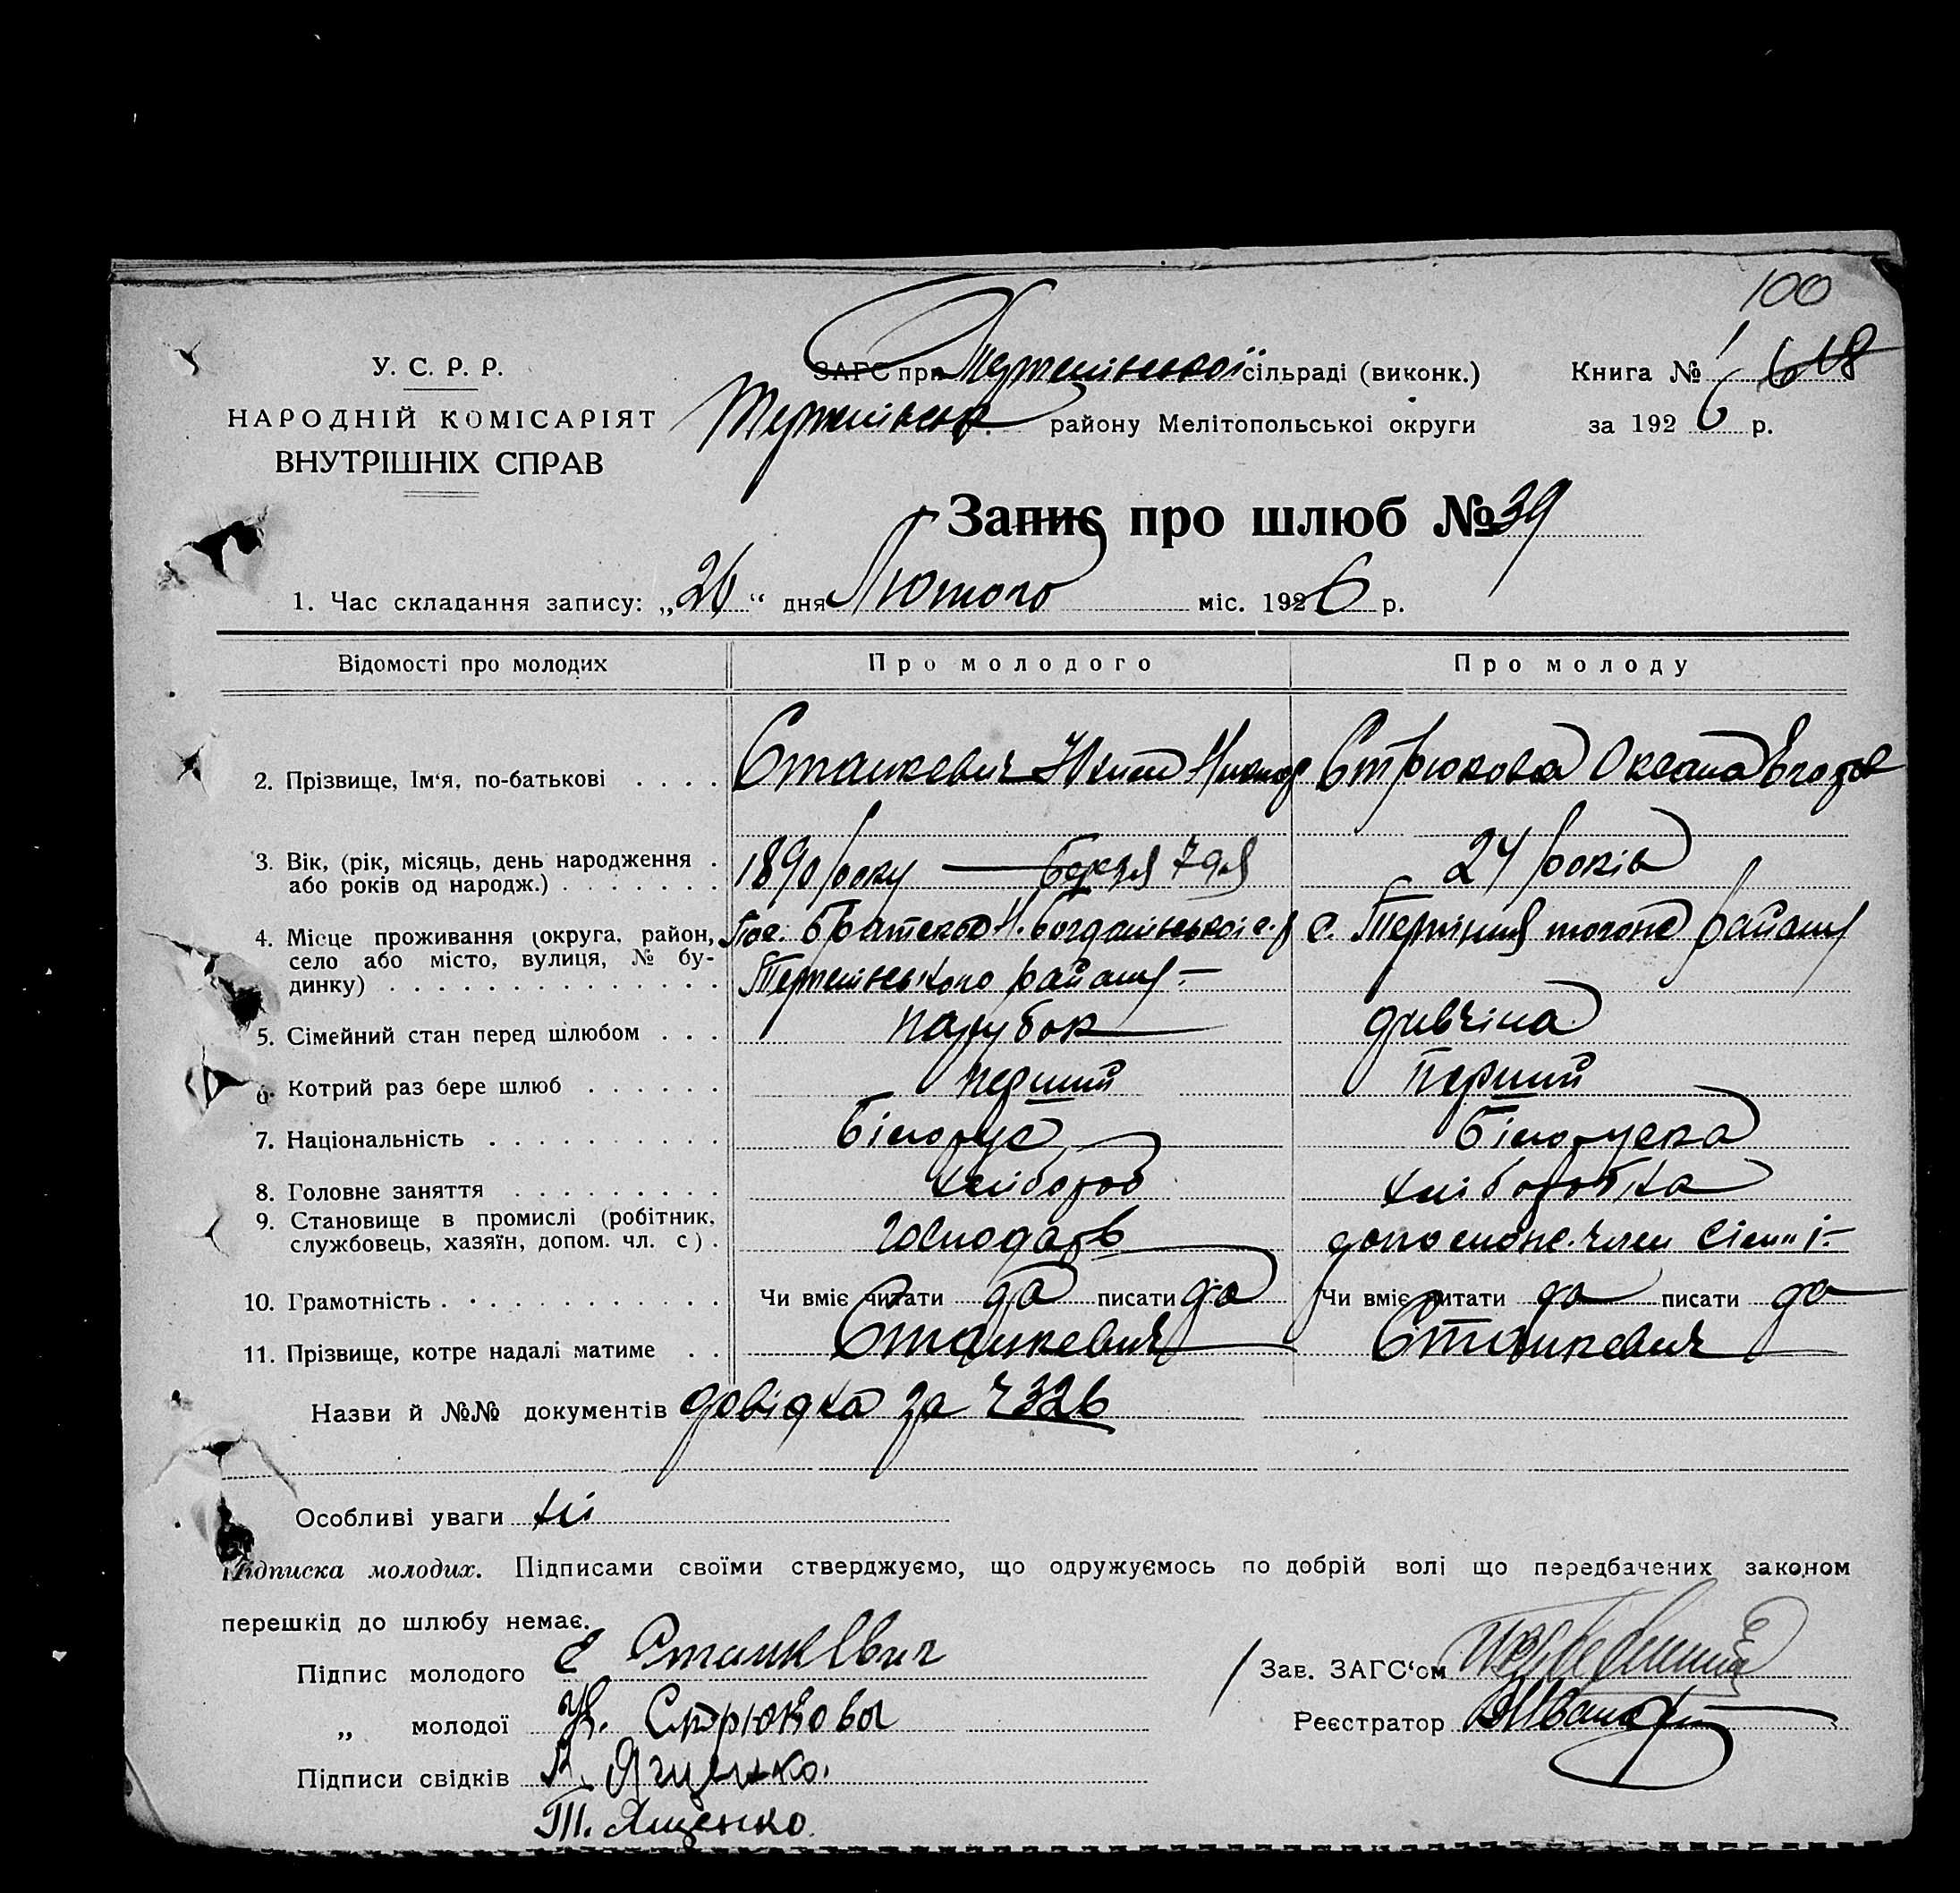 100
У. С. Р. Р.
ЗАГС при сільраді (виконк.)
Книга №
НАРОДНІЙ КОМІСАРІЯТ
району Мелітопольськоі округи
за 192 6 р.
ВНУТРІШНІХ СПРАВ
Запис про шлюб № 39
1. Час складання запису: „26“ дня Лютого міс. 1926 р.
Відомості про молодих
Про молодого
Про молоду
2. Прізвище, Ім‘я, по-батькові . . . .
Станкевич
Стрюкова Оксана
3. Вік, (рік, місяць, день народження .
або років од народж.) . . . . . . .
1890 року — березня 7 дня
24 років
4. Місце проживання (округа, район,
село або місто, вулиця, № бу-
динку) . . . . . . . . . . . . . .
Пос. Братское Н. Богданівської с. р
района —
с. Терпіння того же району
5. Сімейний стан перед шлюбом . . .
парубок
дивчіна
6. Котрий раз бере шлюб . . . . . .
перший
перший
7. Національність . . . . . . . . . .
Білорус
Білоруска
8. Головне заняття . . . . . . . . .
хлібороб
хліборобка
9. Становище в промислі (робітник,
службовець, хазяїн, допом. чл. с) .
господарь
член сімні-
10. Грамотність . . . . . . . . . . . .
Чи вміє читати да писати да
Чи вміє читати да писати да
11. Прізвище, котре надалі матиме . .
Станкевич
Станкевич
Назви й №№ документів довідка за ч 326
Особливі уваги
Підписка молодих. Підписами своїми стверджуємо, що одружуємось по добрій волі що передбачених законом
перешкід до шлюбу немає.
Підпис молодого Е Станкевич
Зав. ЗАГС‘ом
„ молодої Стрюкова
Реєстратор
Підписи свідків Ященко.
Т. Ященко